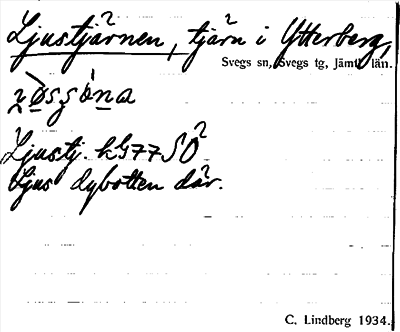 Ljustjärnen, tjärn i Ytterberg,
Svegs sn, Svegs tg, Jämtl. län.
Ljustj. kG77SO
Ljus dybotten där.
C. Lindberg 1934.